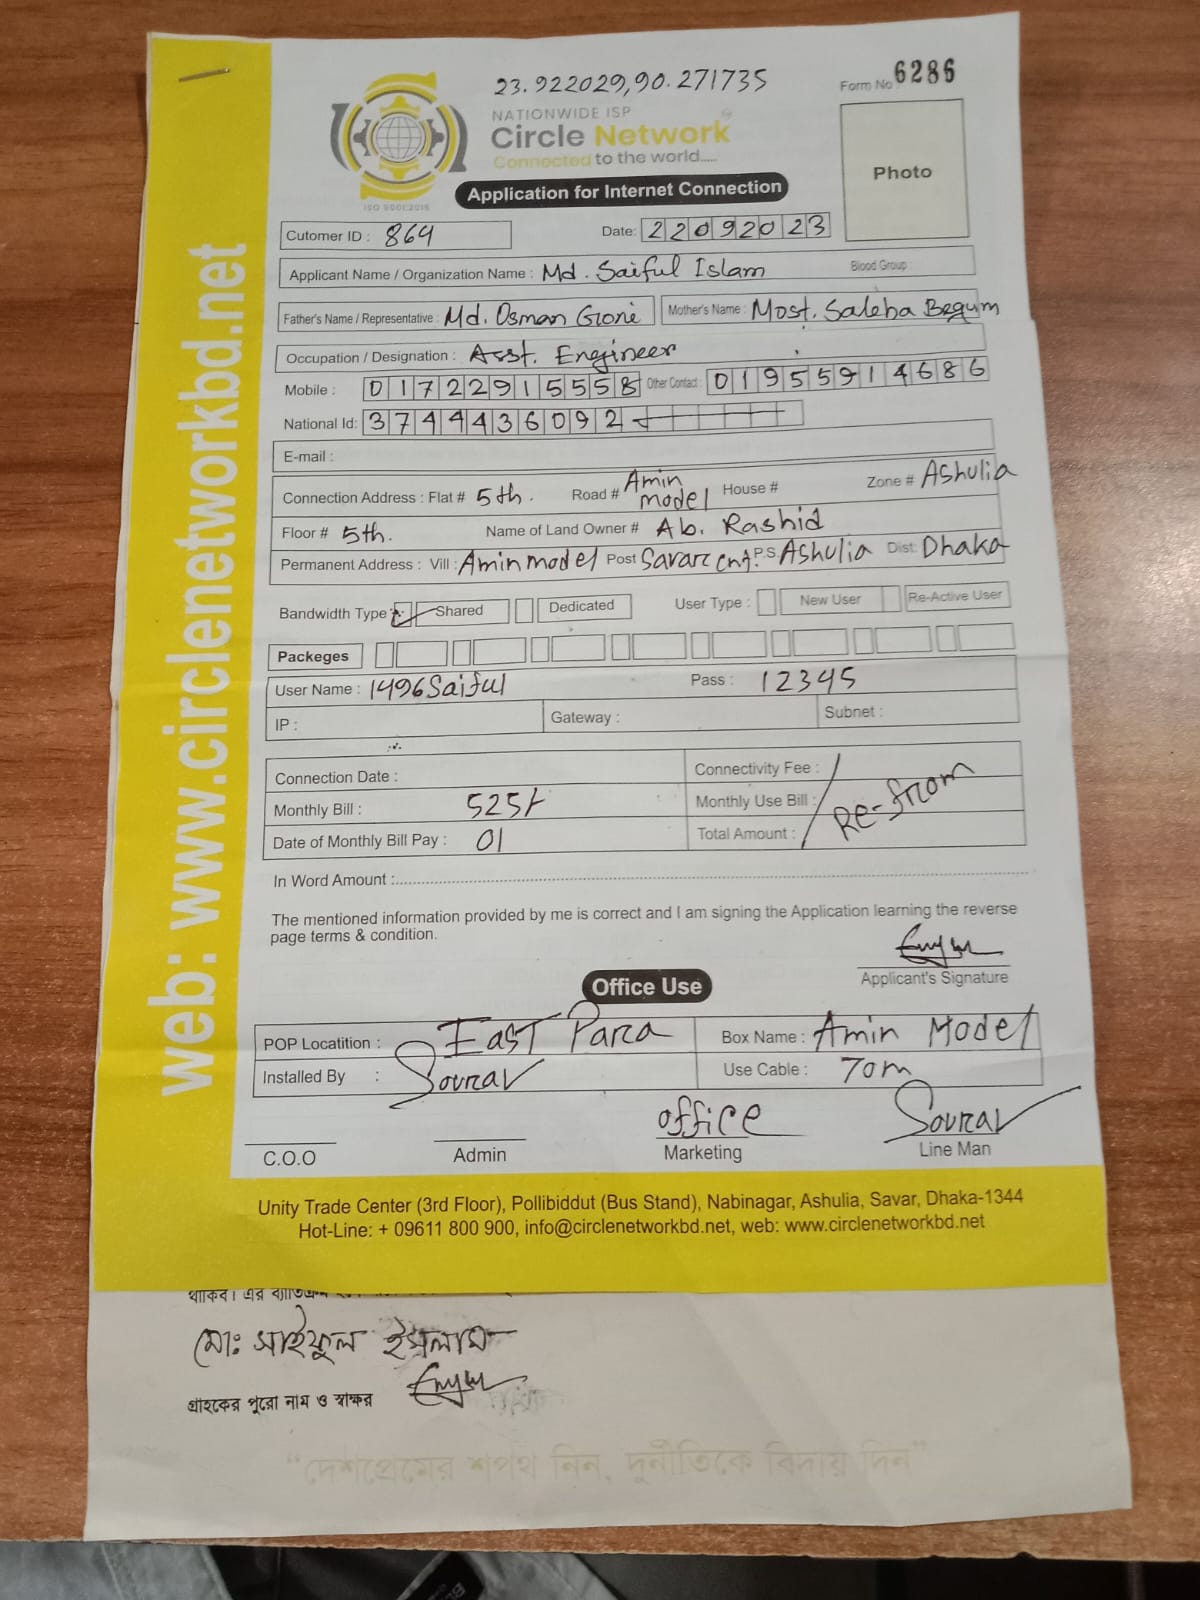 23.922029,90.271735
Form No 6286
NATIONWIDE ISP
Circle Network
Connected to the world.....
ISO 9001:2015
Photo
Application for Internet Connection
Cutomer ID : 864 Date: 22092023
Applicant Name / Organization Name : Md. Saiful Islam Blood Group :
Father's Name / Representative : Md. Osman Gone Mother's Name : Most. Saleha Begum
Occupation / Designation : Asst. Engineer
Mobile : 01722915558 Other Contact : 01955914686
National Id: 3744436092
E-mail :
Connection Address : Flat # 5th. Road # Amin model House # Zone # Ashulia
Floor # 5th. Name of Land Owner # Ab. Rashid
Permanent Address : Vill : Amin model Post Savar Cnt. P.S Ashulia Dist: Dhaka
Bandwidth Type : Shared Dedicated User Type : New User Re-Active User
Packeges
User Name : 1496Saiful Pass : 12345
IP : Gateway : Subnet :
Connection Date : Connectivity Fee :
Monthly Bill : 525/- Monthly Use Bill :
Re-from
Date of Monthly Bill Pay : 01 Total Amount :
In Word Amount :
The mentioned information provided by me is correct and I am signing the Application learning the reverse
page terms & condition.
Applicant's Signature
Office Use
POP Locatition : East Para Box Name : Amin Model
Installed By : Sourav Use Cable : 70m
office Sourav
C.O.O Admin Marketing Line Man
Unity Trade Center (3rd Floor), Pollibiddut (Bus Stand), Nabinagar, Ashulia, Savar, Dhaka-1344
Hot-Line: + 09611 800 900, info@circlenetworkbd.net, web: www.circlenetworkbd.net
web: www.circlenetworkbd.net
থাকিব। এর
মোঃ সাইফুল ইসলাম
গ্রাহকের পুরো নাম ও স্বাক্ষর
“দেশপ্রেমের শপথ নিন, দুর্নীতিকে বিদায় দিন”